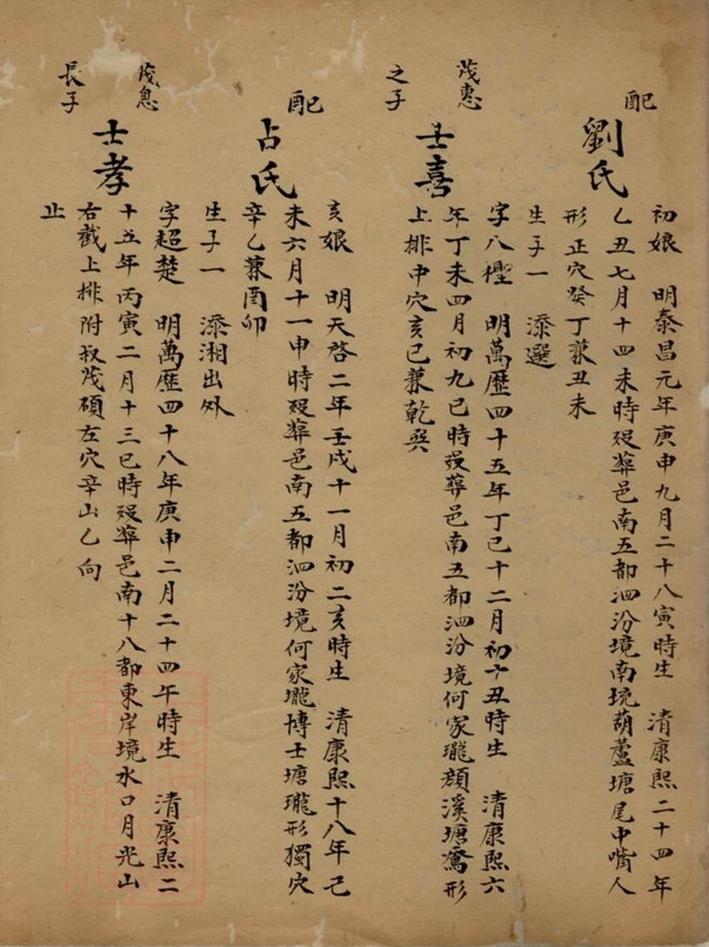 配
劉氏
初娘 明泰昌元年庚申九月二十八寅時生 清康熙二十四年
乙丑七月十四未時殁葬邑南五都泗汾境南境葫蘆塘尾中嘴人
形正穴癸丁兼丑未
生子一 添選
茂惠
之子
士喜
字八檉 明萬歷四十五年丁巳十二月初十丑時生 清康熙六
年丁未四月初九巳時殁葬邑南五都泗汾境何家壠顏溪塘鴌形
上排中穴亥巳兼乾巽
配
占氏
亥娘 明天啓二年壬戌十一月初二亥時生 清康熙十八年己
未六月十一申時殁葬邑南五都泗汾境何家壠博士塘壠形獨穴
辛乙兼酉卯
生子一 添湘出外
茂息
長子
士孝
字超楚 明萬歷四十八年庚申二月二十四午時生 清康熙二
十五年丙寅二月十三巳時殁葬邑南十八都東岸境水口月光山
右截上排附叔茂碩左穴辛山乙向
止